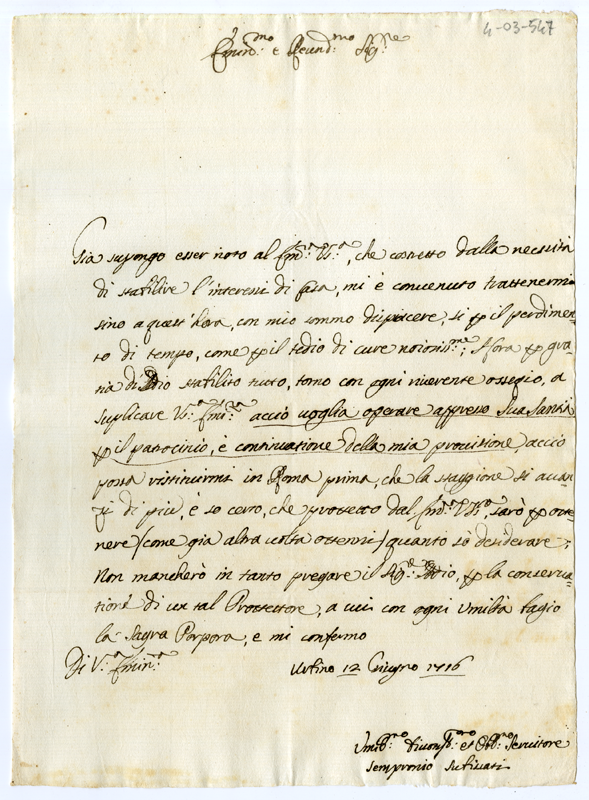 4-03-547
Emin:mo e Reund:mo Sig:re
Già supongo esser noto al Em:a Vs:a, che costretto dalla necessità
di stabilire l'interessi di Casa, mi è convenuto trattenermi
sino a quest'hora, con mio sommo dispiacere, si p il perdimen-
to di tempo, come p il tedio di cure noiosiss:me; Hora p gra-
tia di Dio stabilito tutto, torno con ogni riverente ossequio, a
suplicare Vs:a Emin:a acciò voglia operare appresso Sua Santità
p il patrocinio, è continuatione della mia provisione, acciò
possa restituirmi in Roma prima, che la staggione si auan-
zi di più, è so certo, che protetto dal Em:a Vs:a sarò p otte-
nere (come già altra volta ottenni) quanto sò desiderare;
Non mancherò in tanto pregare il Sig:re Iddio, p la conserua-
tione di un tal Prottettore, a cui con ogni Umiltà bagio
la Sagra Porpora, e mi confermo
Di V:a Emin:a
Urbino 12 Giugno 1716
Umil:mo Diuot:mo et Obb:mo Seruitore
Sempronio Subissati